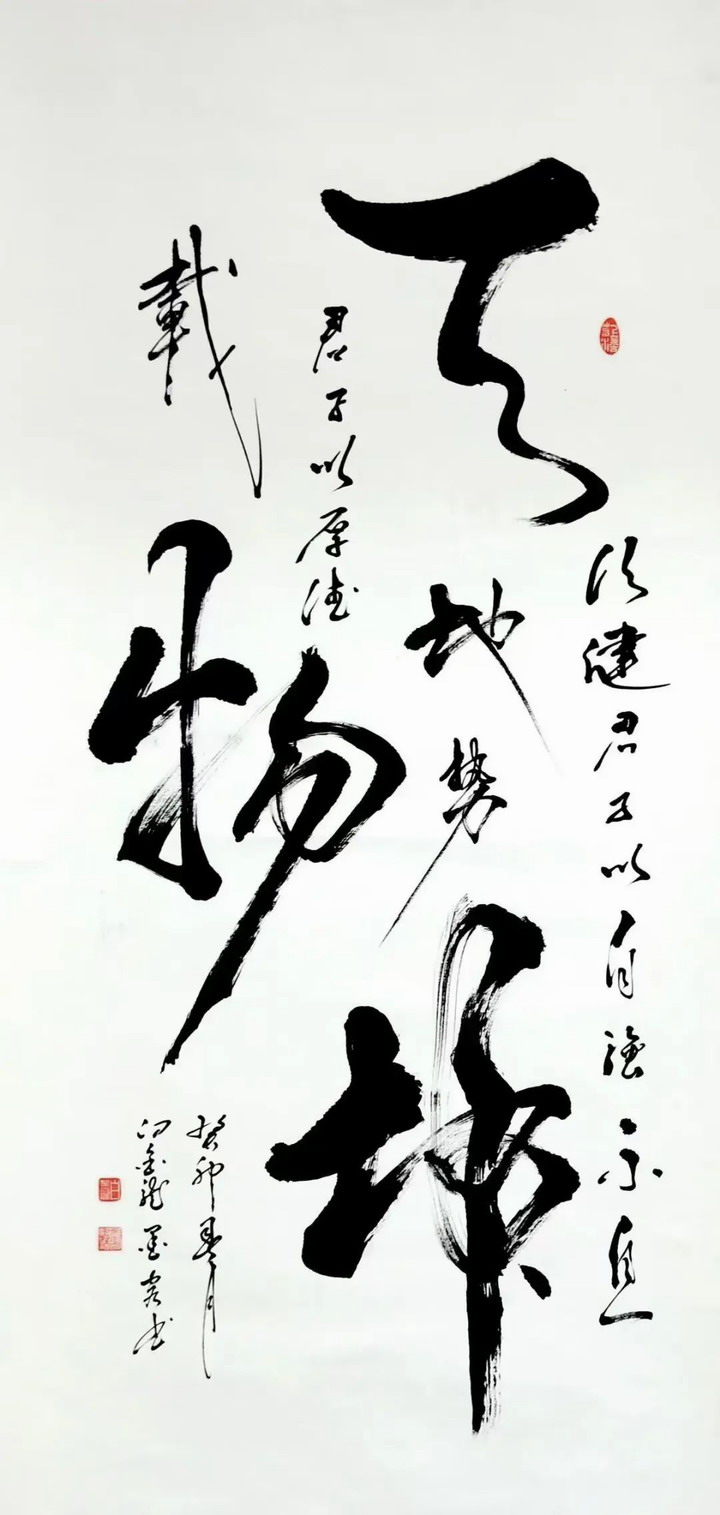 天
行健君子以自強不息
地势坤
君子以厚德
載物
癸卯春月
金龙墨客书